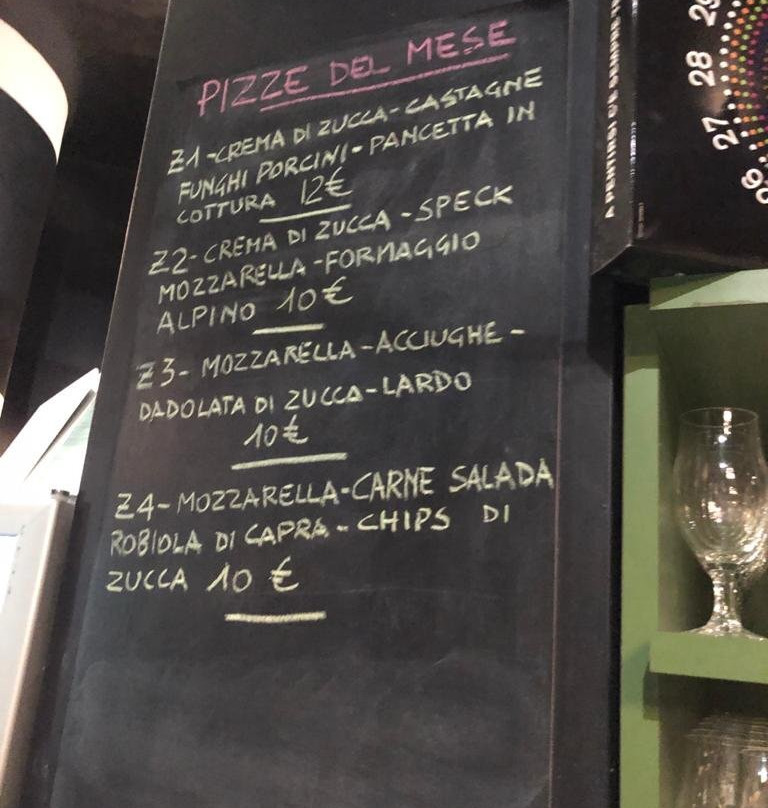 PIZZE DEL MESE
Z1-CREMA DI ZUCCA-CASTAGNE
FUNGHI PORCINI-PANCETTA IN
COTTURA 12€
Z2-CREMA DI ZUCCA-SPECK
MOZZARELLA-FORMAGGIO
ALPINO 10€
Z3-MOZZARELLA-ACCIUGHE-
DADOLATA DI ZUCCA-LARDO
10€
Z4-MOZZARELLA-CARNE SALADA
ROBIOLA DI CAPRA-CHIPS DI
ZUCCA 10 €
29
28
27
26
A PENTIRSI C'È SEMPRE